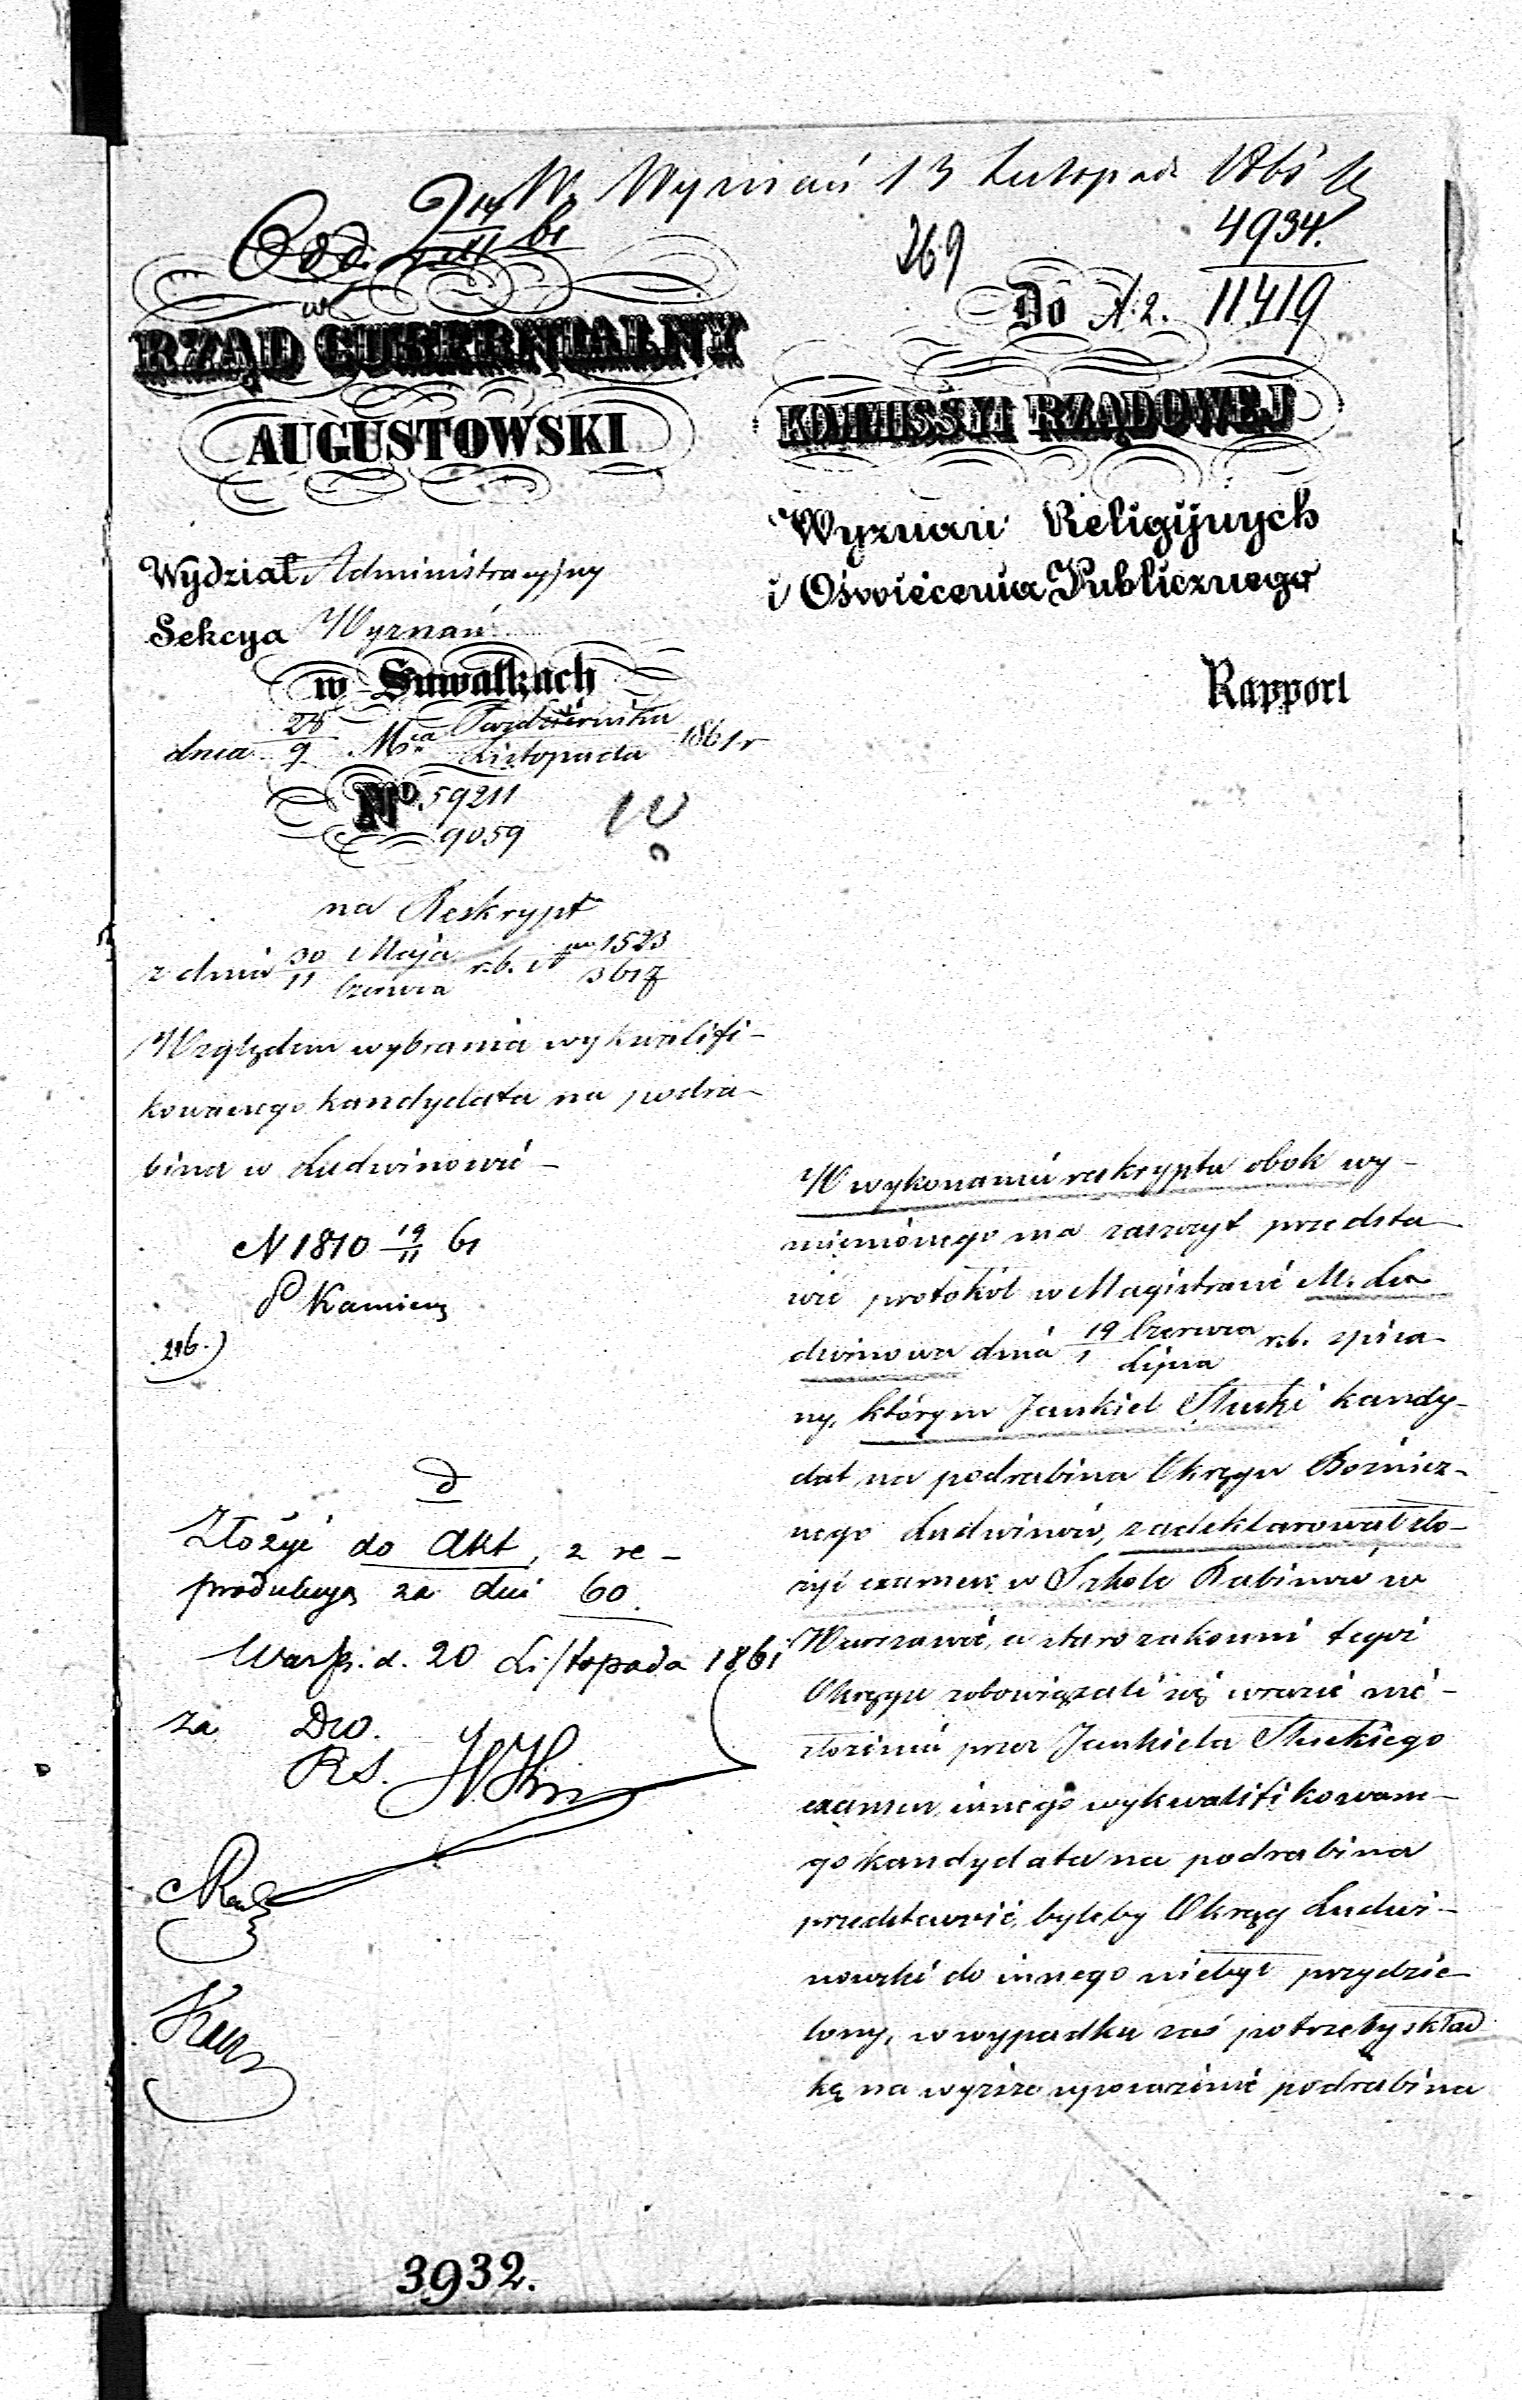 W. Wyznań 13 Listopad 1861 r
4934.
269
Do A. 2. 11419
RZĄD GUBERNIALNY
AUGUSTOWSKI
KOMMISSYI RZĄDOWEJ
Wyznań Religijnych
i Oświecenia Publicznego
Rapport
Wydział Administracyjny
Sekcya Wyznań
w Suwałkach
dnia 28/9 Mca Października/Listopada 1861 r
No. 59211
9059
na Reskrypt
z dnia 30/11 Maja/Czerwca r.b. No 1523/3617
Względem wybrania wykwalifi-
kowanego kandydata na podra-
bina w Ludwinowie -
N 1810 19/11 61
P Kamieny
216.)
d
Złożyć do Akt, z re-
produkcyą za dni 60.
Warsz. d. 20 Listopada 1861
za Dw.
R.S.
W wykonaniu reskryptu obok wy-
mienionego ma zaszczyt przedsta
wić protokół w Magistracie M. Lu
dwinowa dnia 19/1 Czerwca/Lipca r.b. spisa-
ny, którym Jankiel Słucki kandy-
dat na podrabina Okręgu Bożnicz-
nego Ludwinów, zadeklarował zło-
żyć examen w Szkole Rabinów w
Warszawie, a starozakonni tegoż
Okręgu zobowiązali się wrazie nie-
złożenia przez Jankiela Słuckiego
examenu innego wykwalifikowane-
go kandydata na podrabina
przedstawić, byleby Okręg Ludwi-
nowski do innego niebył przydzie-
lony, w wypadku zaś potrzeby skład
kę na wyższe uposażenie podrabina
3932.